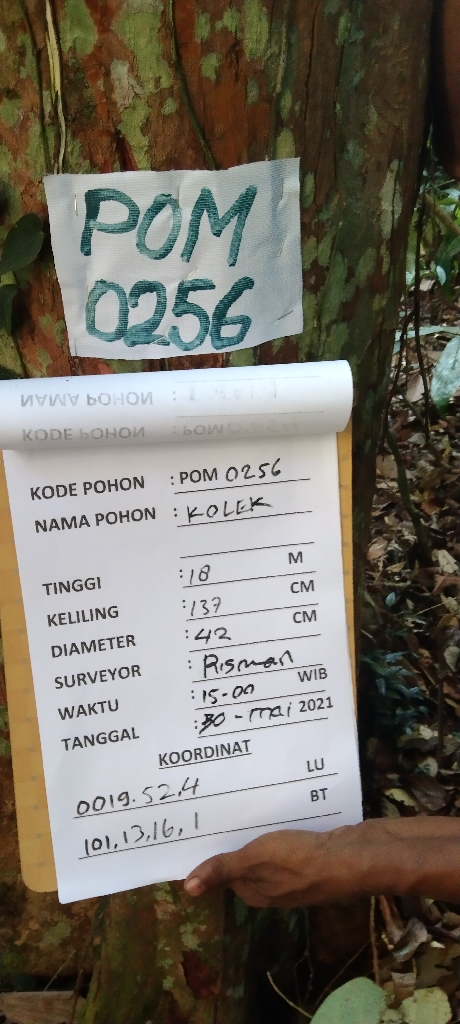 POM
0256
KODE POHON : POM 0256
NAMA POHON : KOLEK
TINGGI : 18 M
KELILING : 137 CM
DIAMETER : 42 CM
SURVEYOR : Risman
WAKTU : 15-00 WIB
TANGGAL : 30 - mai 2021
KOORDINAT
0019.52.4 LU
101.13.16.1 BT